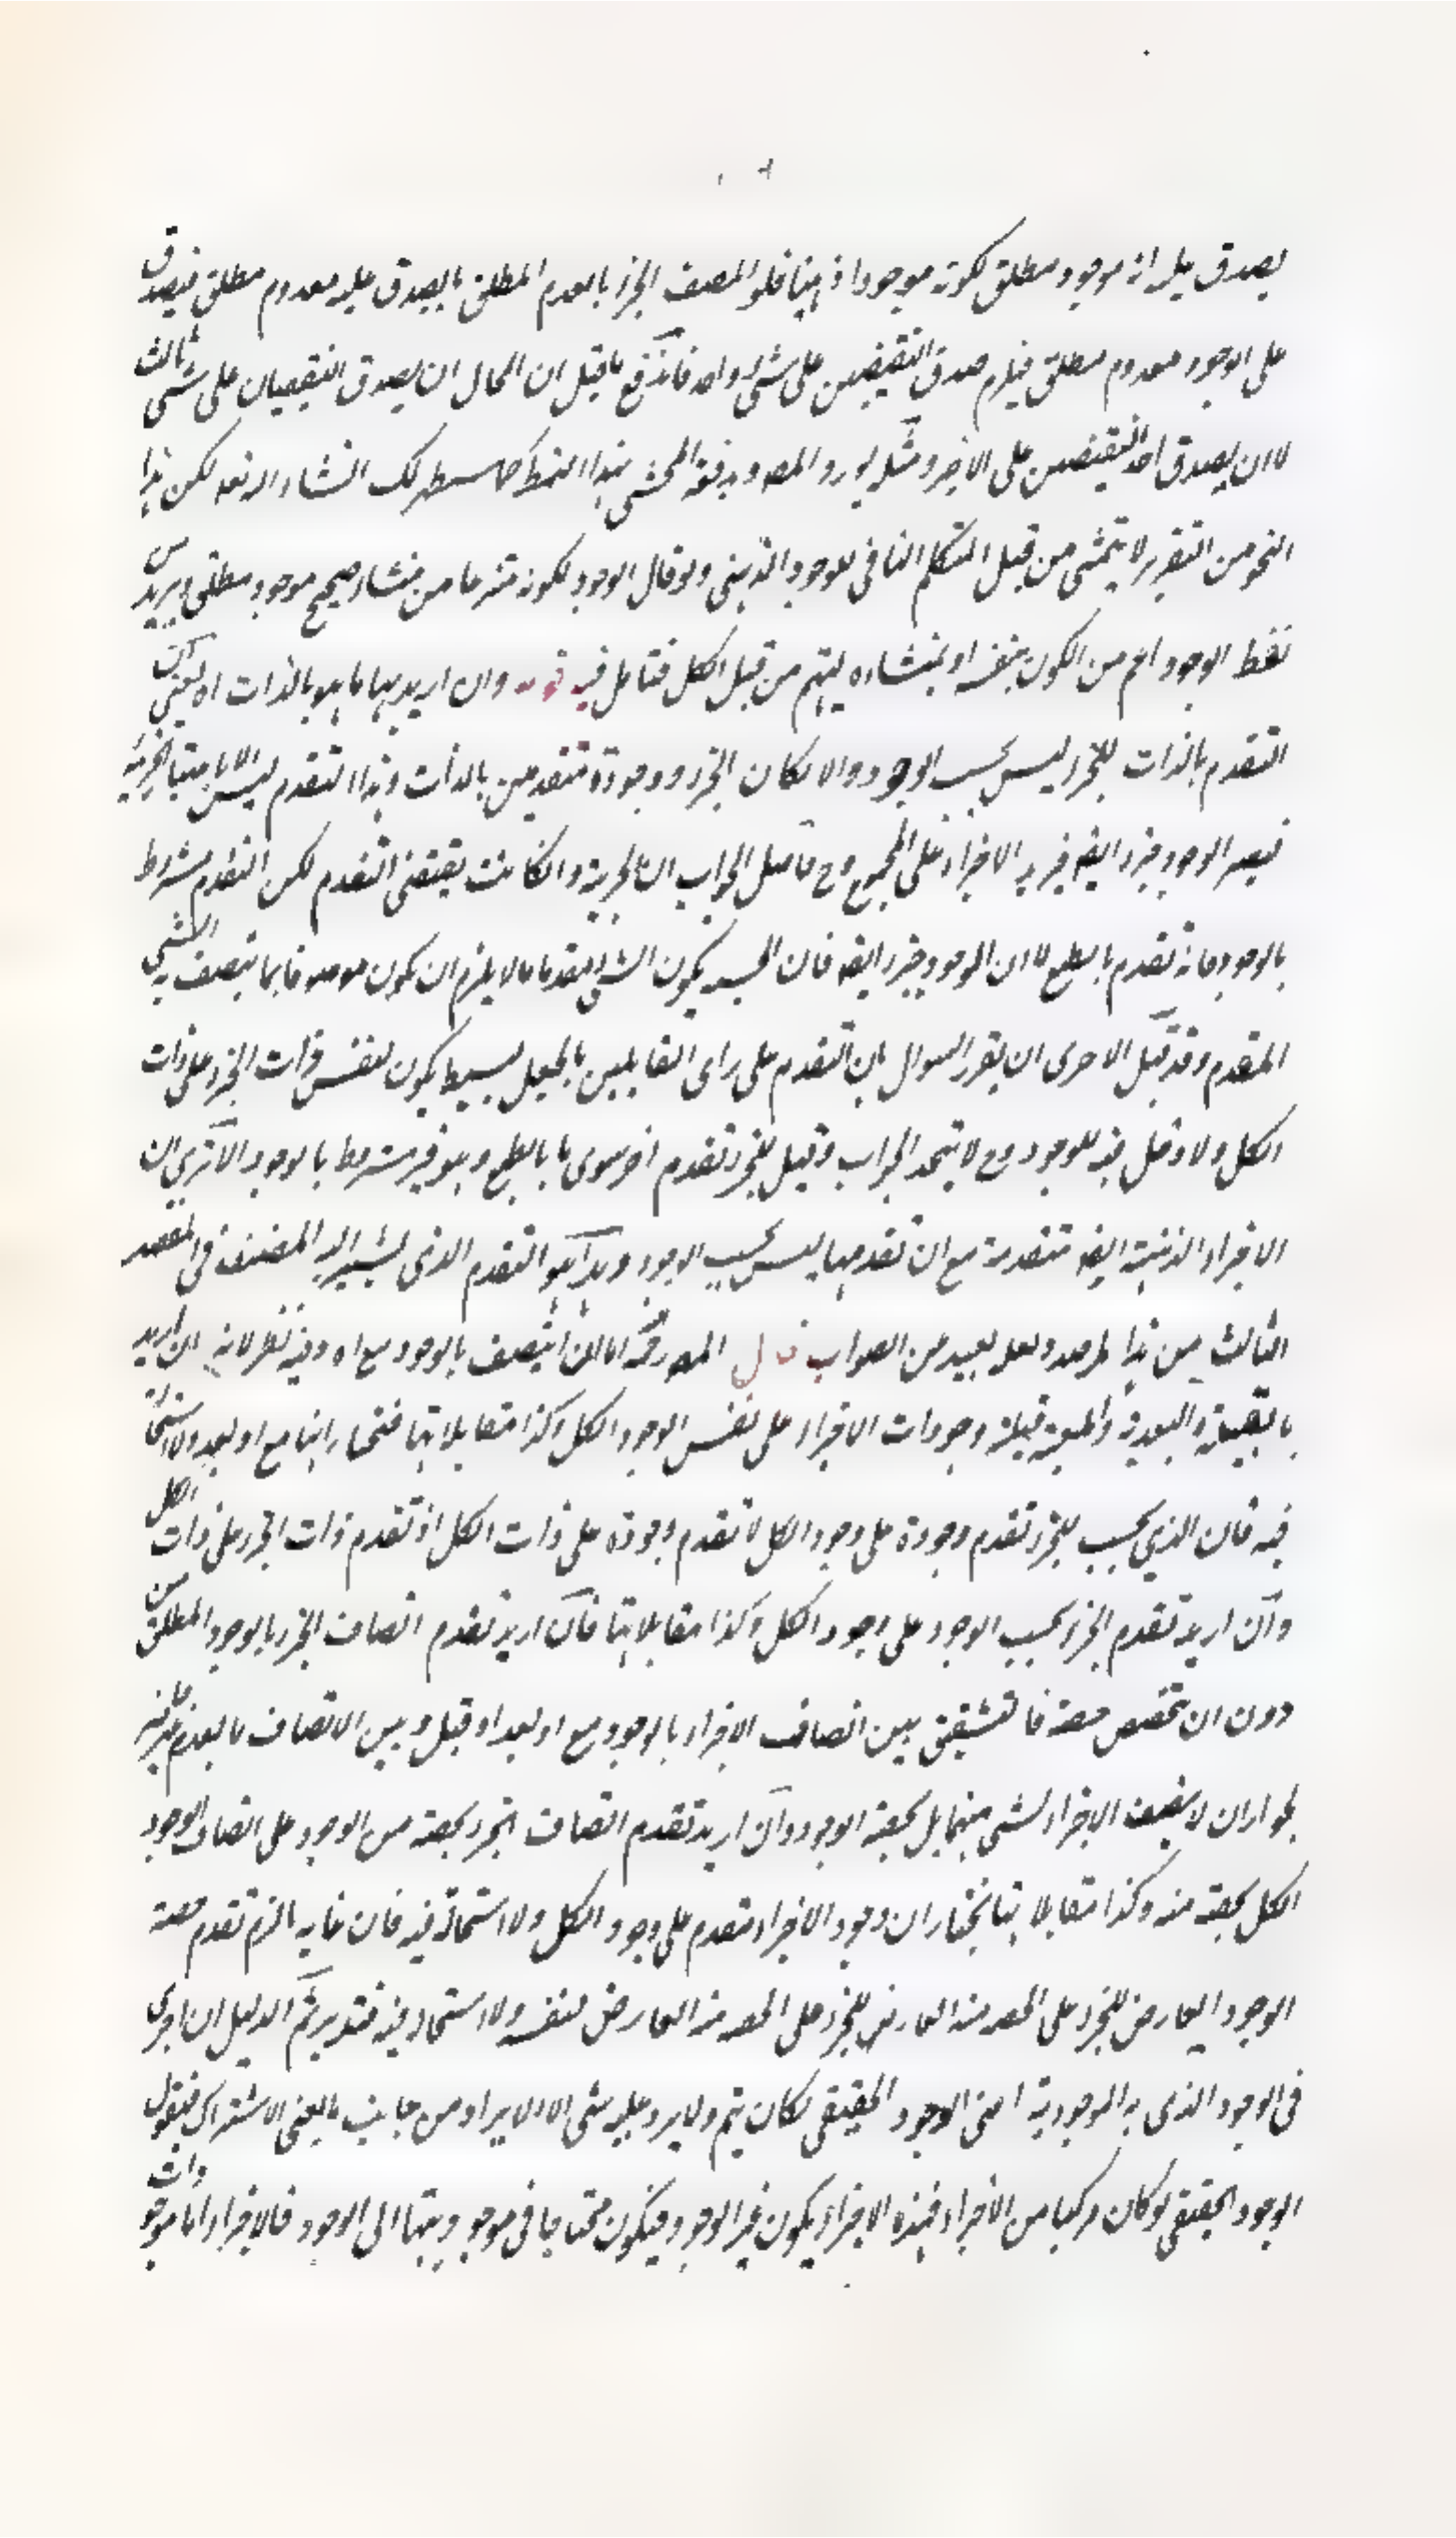 يصدق عليه انه موجود مطلق لكونه موجودا ذهنيا فلو اتصف الجزء بالعدم المطلق يصدق عليه معدوم مطلق فيصدق
على الوجود معدوم مطلق فيلزم صدق النقيضين على شئ واحد فاندفع ما قيل ان المحال ان يصدق النقيضان على شئ ثالث
لا ان يصدق احد النقيضين على الاخر ومثله يورد المصـ ويدفعه المحشى بهذا النمط كما سيظهر لك انشاء الله تعـ لكن هذا
النحو من التقرير لا يتمشى من قبل المتكلم النافى للوجود الذهنى ولو قال الوجود لكونه منتزعا من منشاء صحيح موجود مطلق ويريد من
لفظ الوجود اعم من الكون بنفسه او بمنشاءه ليتم من قبل الكل فتامل فيه قوله وان اريد بها ما هو بالذات اه يعنى ان
التقدم بالذات للجزء ليس بحسب الوجود والا لكان الجزء ووجوده متقدمين بالذات وهذا التقدم ليس الا باعتبار الجزئية
فيصير الوجود جزء ايضـ فيزيد الاجزاء على المجموع وح حاصل الجواب ان الجزئية وان كانت يقتضى التقدم لكن التقدم مشروط
بالوجود فانه تقدم بالطبع لا ان الوجود جزء ايضـ فان ما بحسبه يكون الشئ متقدما لا يلزم ان يكون موصوفا بما يتصف به الشئ
المقدم وقد قيل الاحرى ان يقرر السوال بان التقدم على راى القايلين بالجعل البسيط يكون لنفس ذات الجزء على ذات
الكل ولا دخل فيه للوجود وح لا يتجه الجواب وقيل للجزء تقدم اخر سوى ما بالطبع وهو غير مشروط بالوجود الا ترى ان
الاجزاء الذهنية ايضـ متقدمة مع ان تقدمها ليس بحسب الوجود وهذا هو التقدم الذى يشير اليه المصنف فى المقصد
الثالث من هذا المرصد ولعله بعيد من الصواب قال المصـ رحمه اما ان اتصف بالوجود مع اه وفيه نظر لانه ان اريد
بالقبلية والبعدية والمعية قبلية وجودات الاجزاء على نفس الوجود الكل وكذا مقابلاتها فنختار انها مع او بعد ولا استحالة
فيه فان الذى يجب للجزء تقدم وجوده على وجود الكل لا تقدم وجوده على ذات الكل او تقدم ذات الجزء على ذات الكل
وان اريد تقدم الجزء بحسب الوجود على وجود الكل وكذا مقابلاتها فان اريد تقدم اتصاف الجزء بالوجود المطلق من
دون ان تخصص حصة فالتشقيق بين اتصاف الاجزاء بالوجود مع او بعد او قبل وبين الاتصاف بالعدم غير حاصر
لجواز ان لا يتصف الاجزاء لشئ منهما بل بحصة الوجود وان اريد تقدم اتصاف الجزء بحصة من الوجود على اتصاف الوجود
الكل بحصة منه وكذا مقابلاتها نختار ان وجود الاجزاء متقدم على وجود الكل ولا استحالة فيه فان غاية ما لزم تقدم حصة
الوجود العارض للجزء على الحصة منه العارض للجزء على الحصة منه العارض لنفسه ولا استحالة فيه فتدبر ثم الدليل ان اجرى
فى الوجود الذى به الموجودية اعنى الوجود الحقيقى لكان يتم ولا يرد عليه شئ الا الايراد من جانب مانعى الاشتراك فيقول
الوجود الحقيقى لو كان مركبا من الاجزاء فهذه الاجزاء يكون غير الوجود فيكون محتاجا فى موجوديتها الى الوجود فالاجزاء اما موجودات